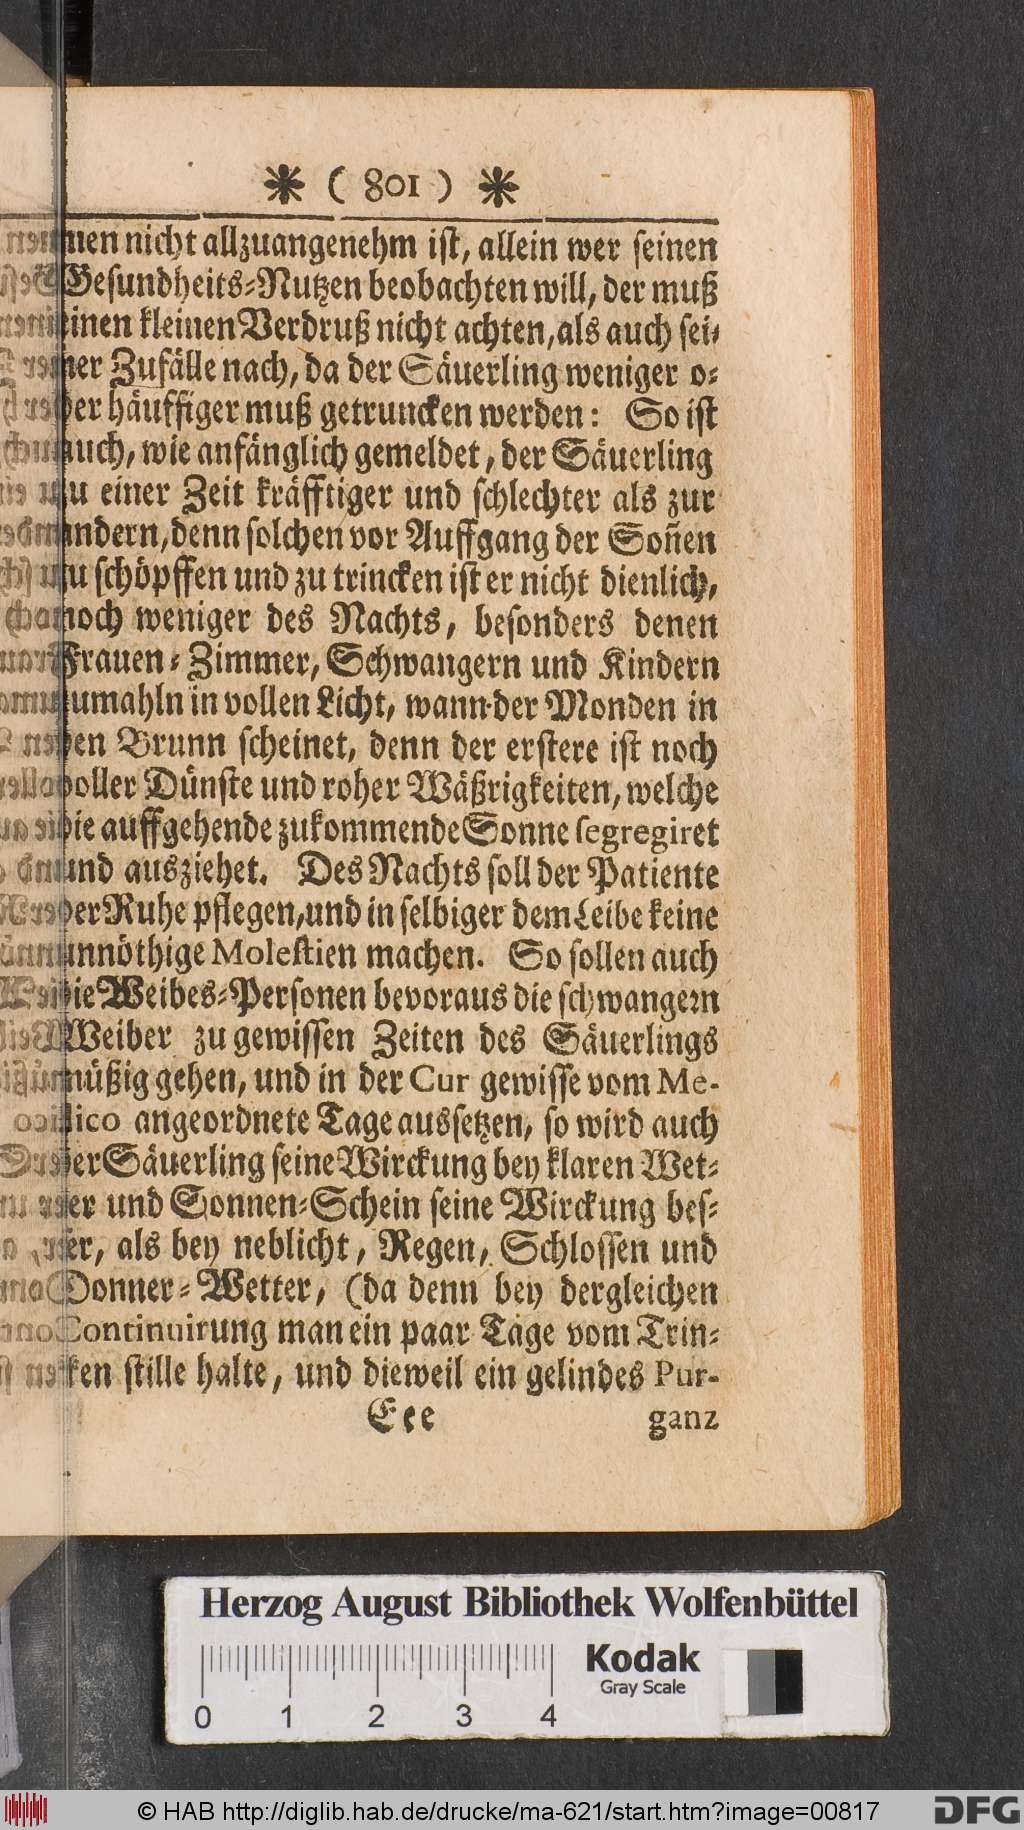 * ( 801 ) *
nen nicht allzuangenehm ist, allein wer seinen
Gesundheits-Nutzen beobachten will, der muß
einen kleinen Verdruß nicht achten, als auch sei-
ner Zufälle nach, da der Säuerling weniger o-
der häuffiger muß getruncken werden: So ist
auch, wie anfänglich gemeldet, der Säuerling
zu einer Zeit kräfftiger und schlechter als zur
andern, denn solchen vor Auffgang der Soñen
zu schöpffen und zu trincken ist er nicht dienlich,
noch weniger des Nachts, besonders denen
Frauen-Zimmer, Schwangern und Kindern
zumahln in vollen Licht, wann der Monden in
den Brunn scheinet, denn der erstere ist noch
voller Dünste und roher Wäßrigkeiten, welche
die auffgehende zukommende Sonne segregiret
und ausziehet. Des Nachts soll der Patiente
der Ruhe pflegen, und in selbiger dem Leibe keine
unnöthige Molestien machen. So sollen auch
die Weibes-Personen bevoraus die schwangern
Weiber zu gewissen Zeiten des Säuerlings
müßig gehen, und in der Cur gewisse vom Me-
dico angeordnete Tage aussetzen, so wird auch
der Säuerling seine Wirckung bey klaren Wet-
ter und Sonnen-Schein seine Wirckung bes-
ser, als bey neblicht, Regen, Schlossen und
Donner-Wetter, (da denn bey dergleichen
Continuirung man ein paar Tage vom Trin-
cken stille halte, und dieweil ein gelindes Pur-
Eee ganz
Herzog August Bibliothek Wolfenbüttel
Kodak
Gray Scale
0 1 2 3 4
© HAB http://diglib.hab.de/drucke/ma-621/start.htm?image=00817
DFG